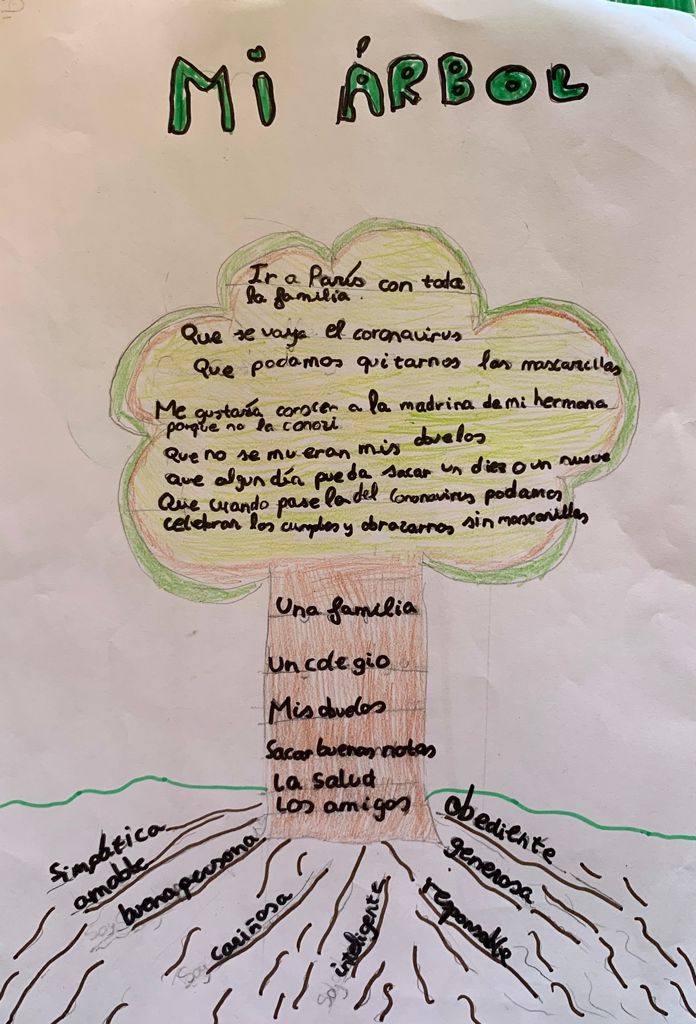 MI ÁRBOL
Ir a París con toda
la familia.
Que se vaya el coronavirus
Que podamos quitarnos las mascarillas
Me gustaría conocer a la madrina de mi hermana
porque no la conocí
Que no se mueran mis abuelos
que algun día pueda sacar un diez o un nueve
Que cuando pase la del coronavirus podamos
celebrar los cumples y abrazarnos sin mascarillas
Una familia
Un colegio
Mis abuelos
Sacar buenas notas
La salud
Los amigos
Simpática
amable
buena persona
Soy cariñosa
Soy inteligente
responsable
generosa
obediente